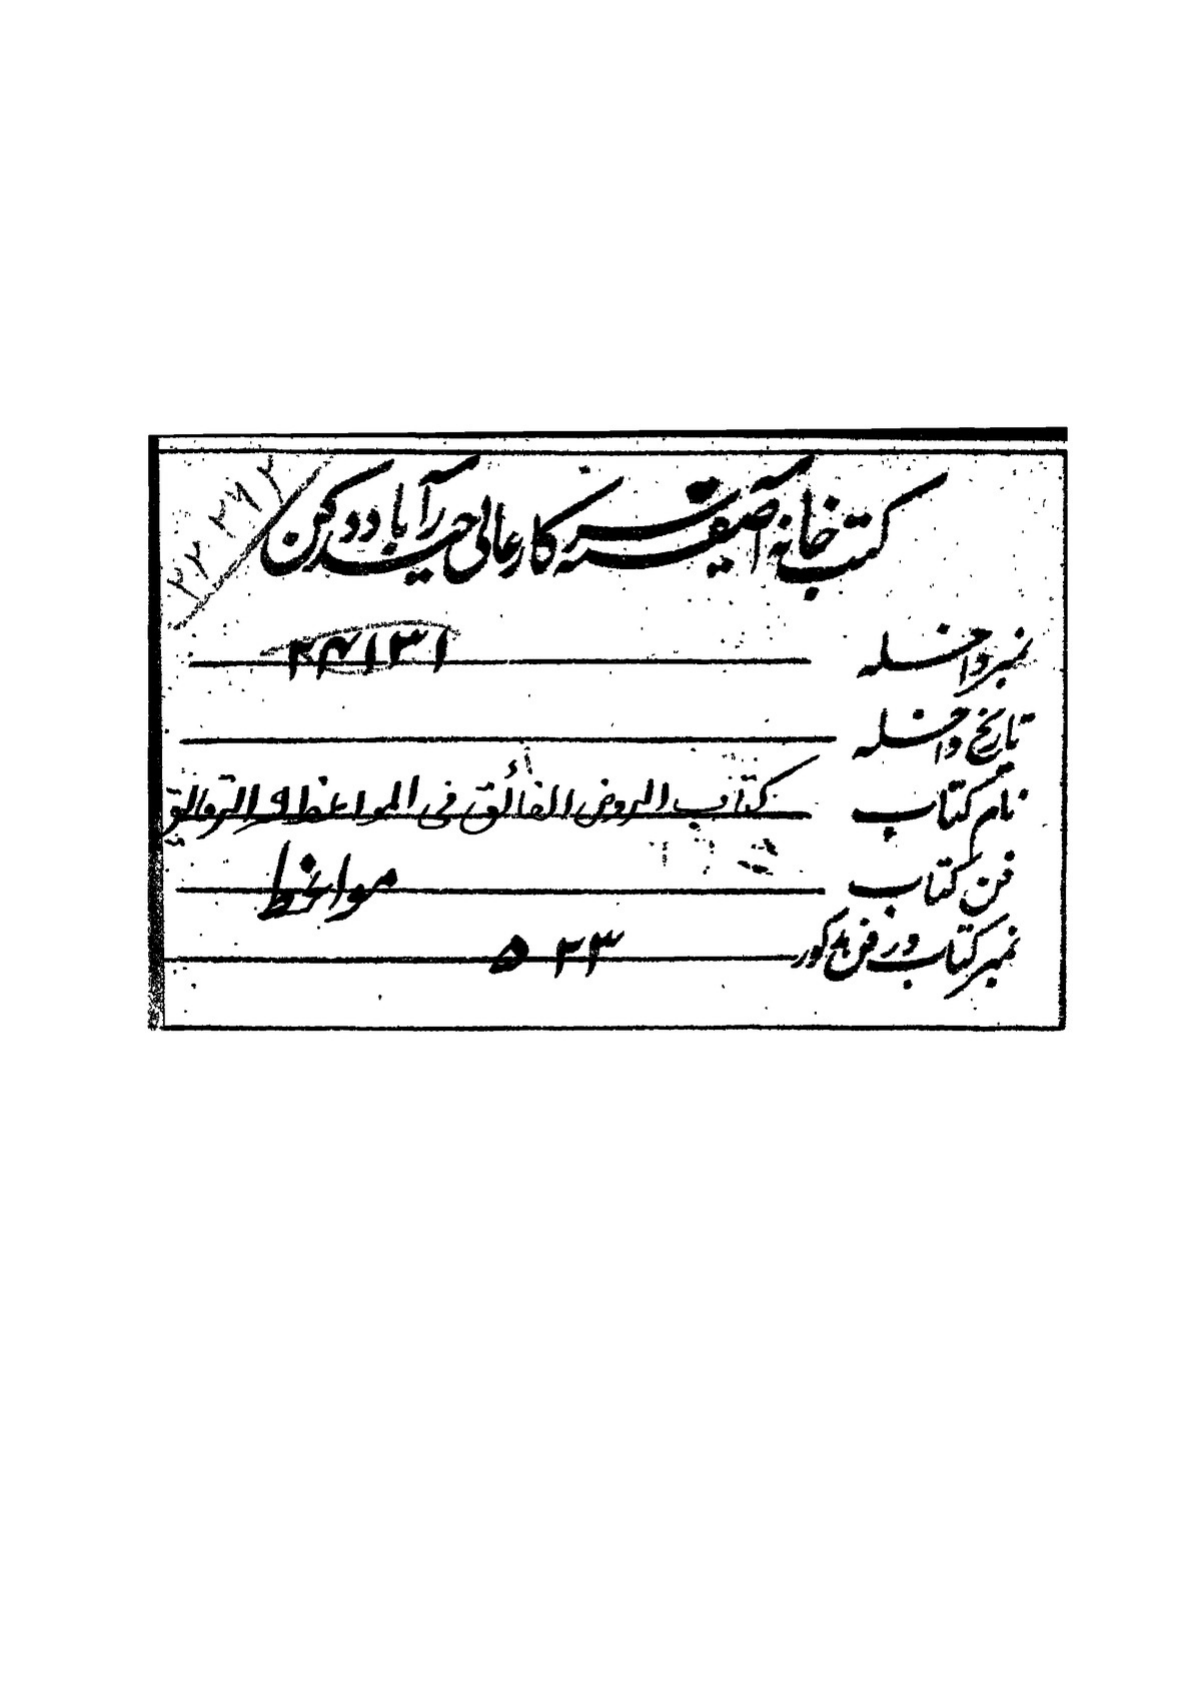 کتب خانہ آصفیہ سرکار عالی حیدرآباد دکن
نمبر داخلہ ۲۴۱۳۱
تاریخ داخلہ
نام کتاب کتاب الروض الفائق فی المواعظ و الرقائق
فن کتاب مواعظ
نمبر کتاب در فن مذکور ۵۲۳